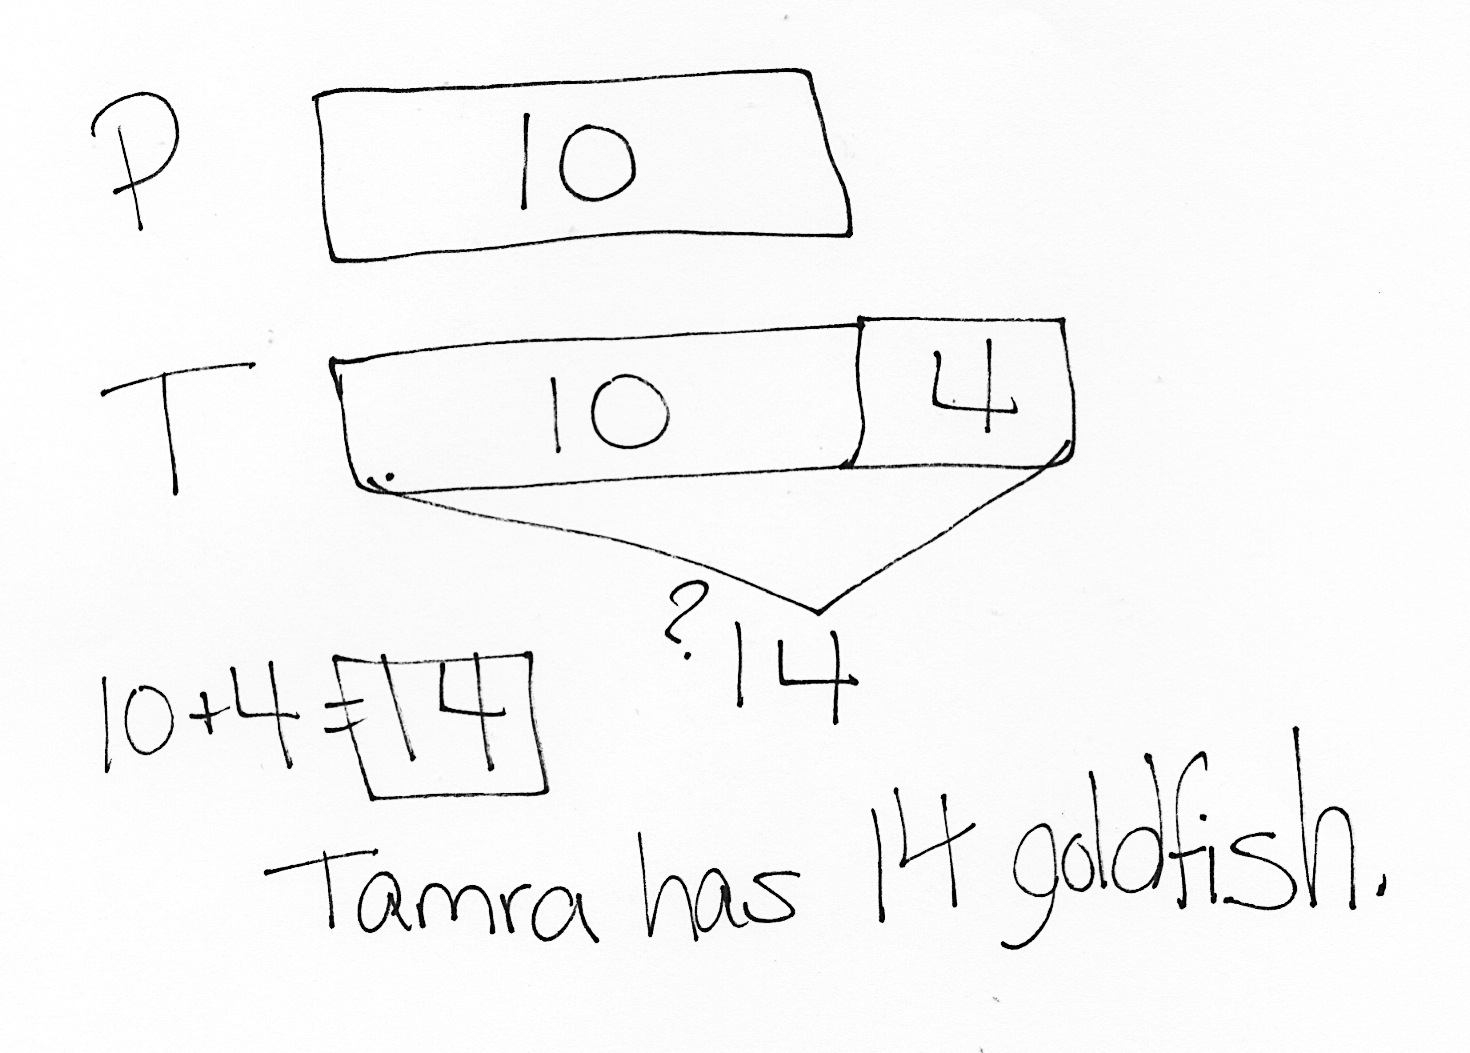 P 10
T 10 4
? 14
10+4=14
Tamra has 14 goldfish.